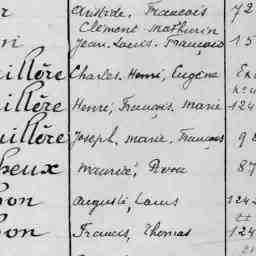 r Aristide. François 72
Clément Mathurin
ni Jean. Louis. François 15
uillère Charles. Henri, Eugène Ex
uillère Henri, François, Marie 124
uillère Joseph, Marie, François 98
heux Maurice, 87
hon Auguste, Louis 124
hon Francis, Thomas 124